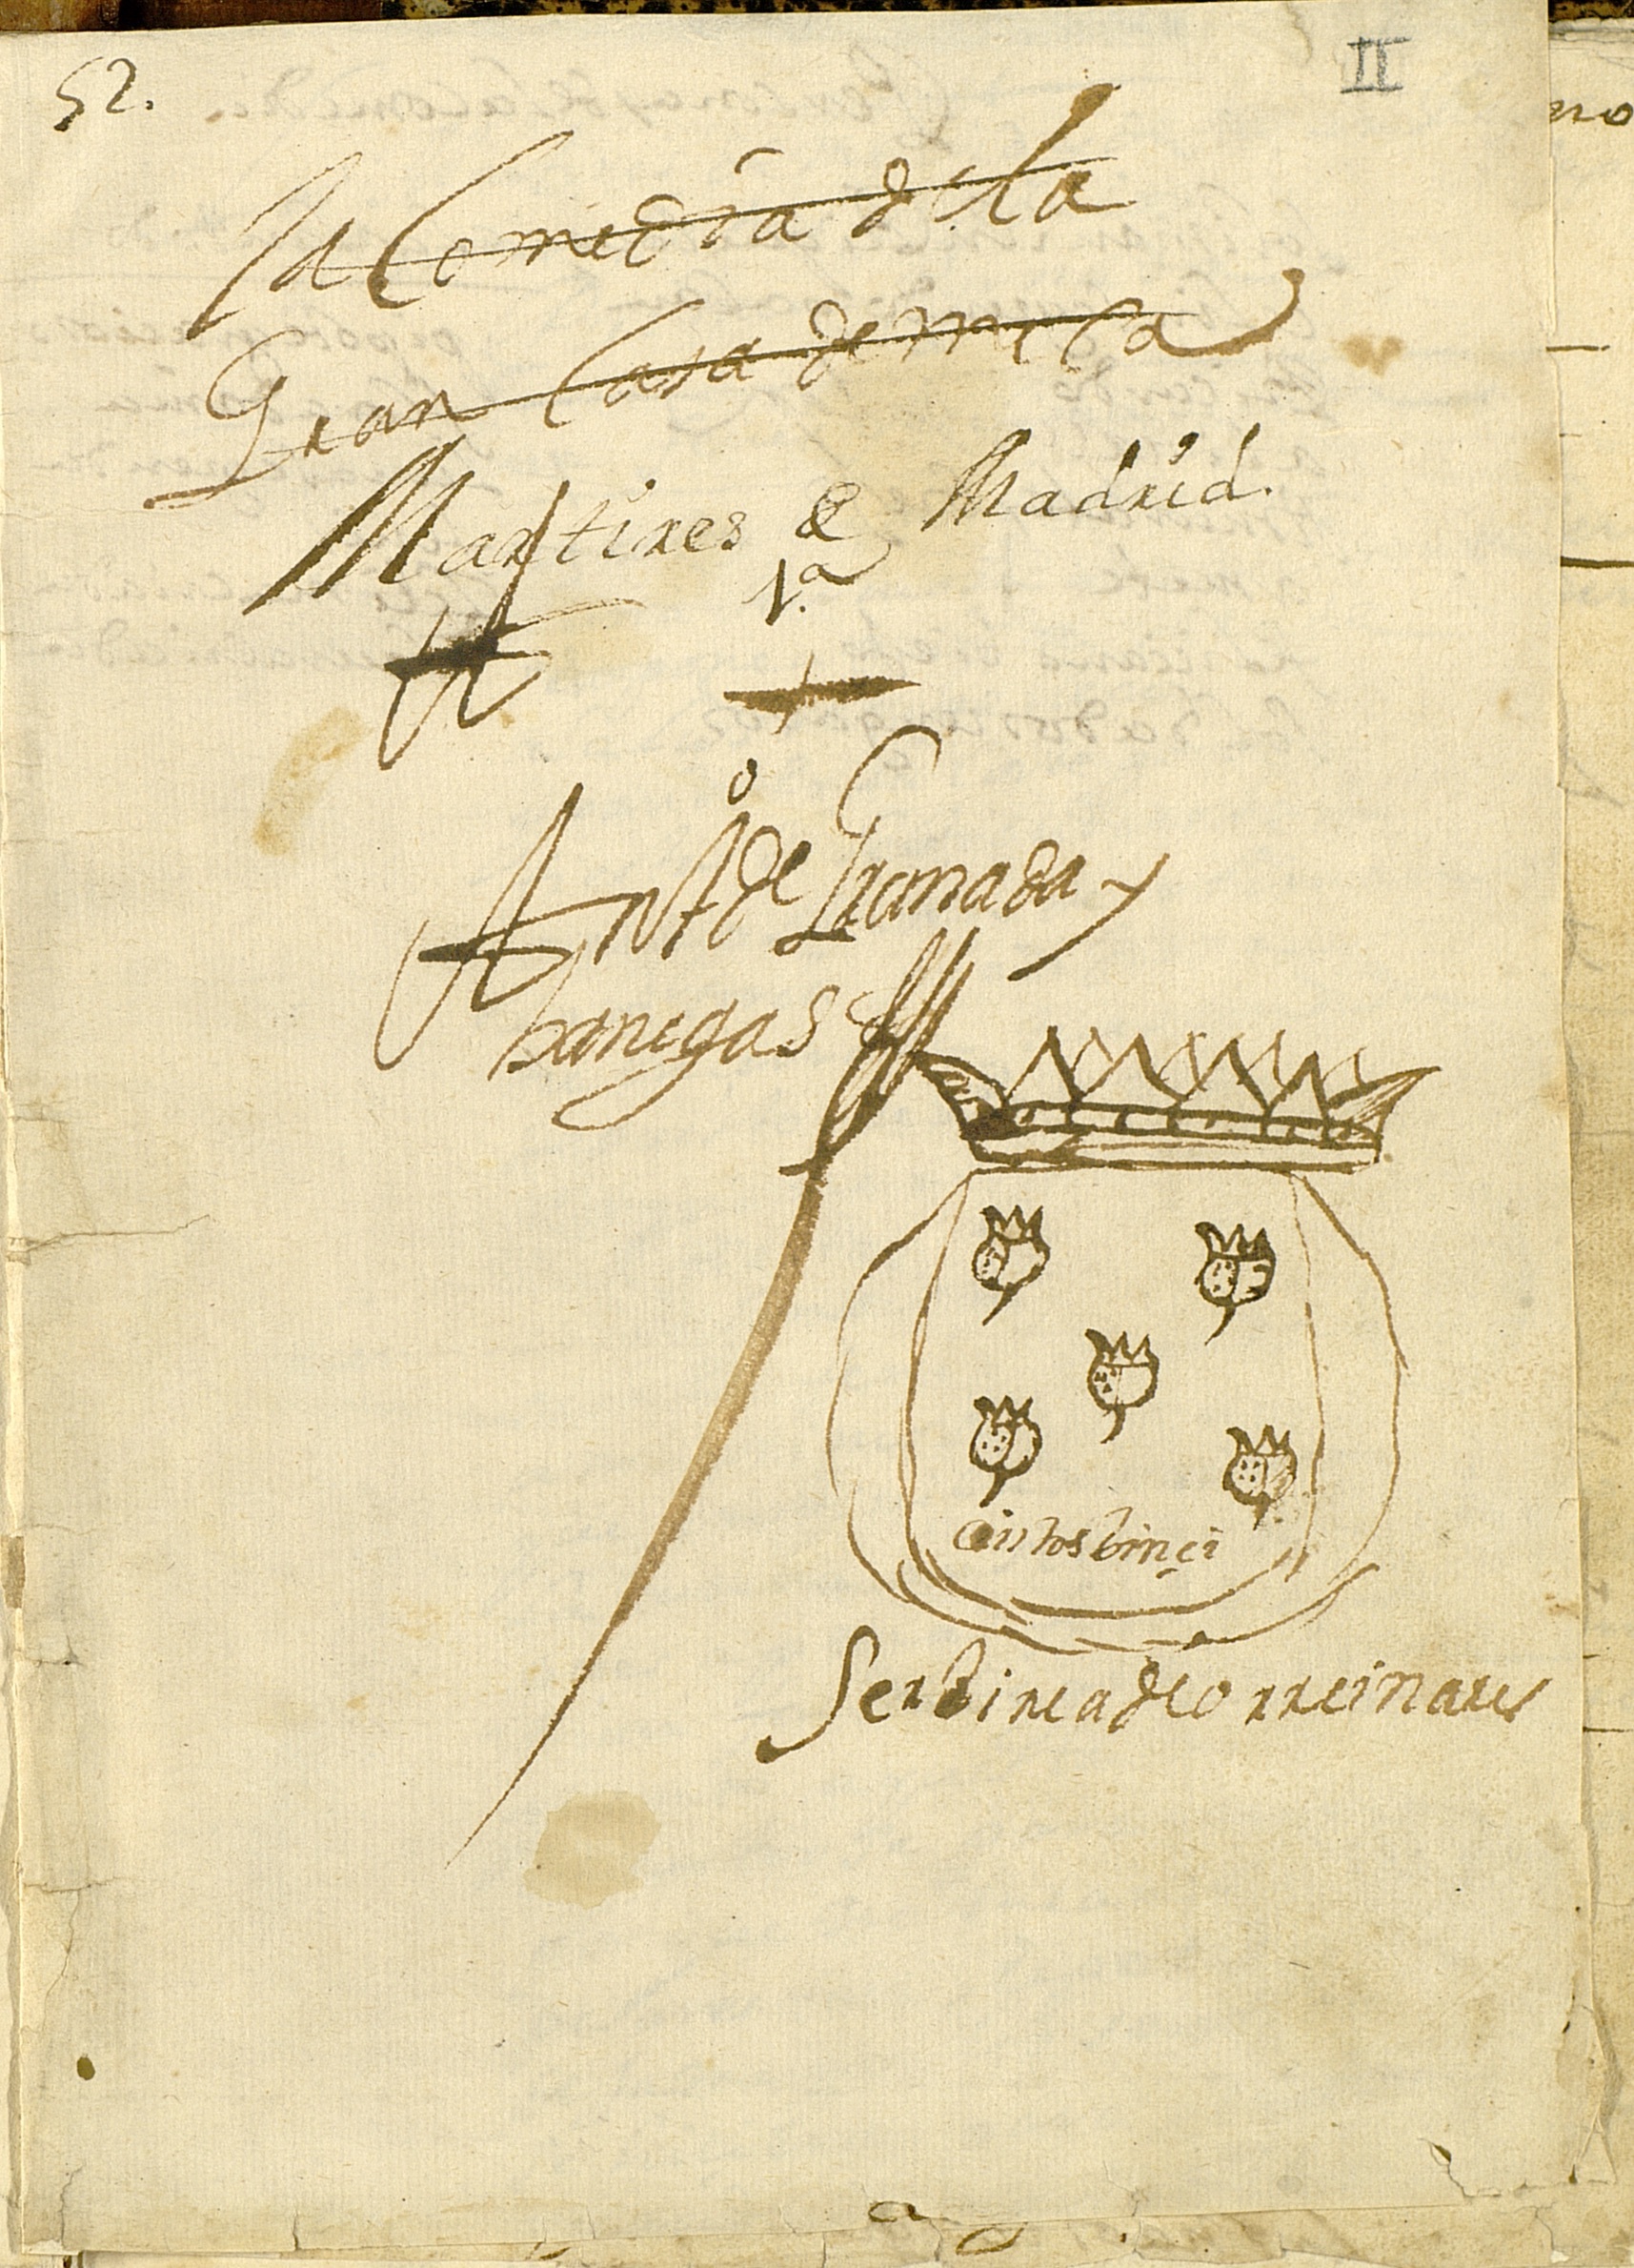 52.
II
la Comedia de la
Gran Casa de meca
Martires de Madrid.
1.ª
Antº de Granada y
banegas
Servire a dio rreinare